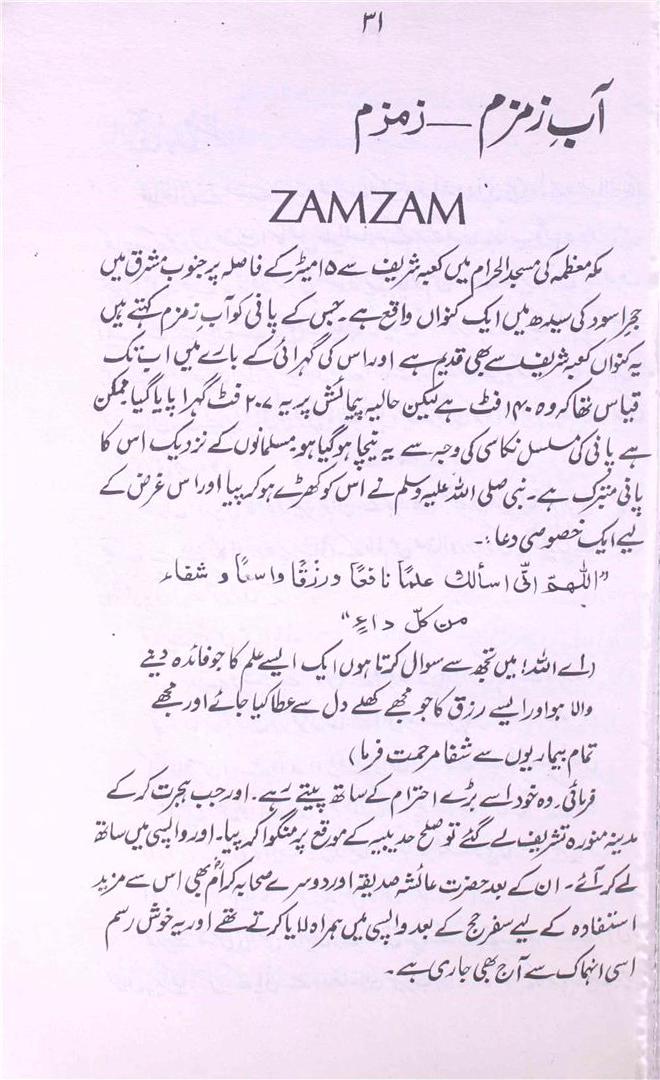 ۳۱
آبِ زمزم — زمزم
ZAMZAM
مکہ معظمہ کی مسجد الحرام میں کعبہ شریف سے ۱۵ میٹر کے فاصلہ پر جنوب مشرق میں
حجرِ اسود کی سیدھ میں ایک کنواں واقع ہے۔ جس کے پانی کو آبِ زمزم کہتے ہیں
یہ کنواں کعبہ شریف سے بھی قدیم ہے اور اس کی گہرائی کے بارے میں اب تک
قیاس تھا کہ وہ ۱۴۰ فٹ ہے لیکن حالیہ پیمائش پر یہ ۲۰۷ فٹ گہرا پایا گیا ممکن
ہے پانی کی مسلسل نکاسی کی وجہ سے یہ نیچا ہو گیا ہو مسلمانوں کے نزدیک اس کا
پانی متبرک ہے۔ نبی صلی اللہ علیہ وسلم نے اس کو کھڑے ہو کر پیا اور اس غرض کے
لیے ایک خصوصی دعا:۔
"اللهم انّی اسألك علمًا نافعًا ورزقًا واسعًا و شفاء
من كلّ داءٍ"
(اے اللہ! میں تجھ سے سوال کرتا ہوں ایک ایسے علم کا جو فائدہ دینے
والا ہو اور ایسے رزق کا جو مجھے کھلے دل سے عطا کیا جائے اور مجھے
تمام بیماریوں سے شفا مرحمت فرما)
فرمائی۔ وہ خود اسے بڑے احترام کے ساتھ پیتے رہے۔ اور جب ہجرت کر کے
مدینہ منورہ تشریف لے گئے تو صلح حدیبیہ کے موقع پر منگوا کر پیا۔ اور واپسی میں ساتھ
لے کر آئے۔ ان کے بعد حضرت عائشہ صدیقہ اور دوسرے صحابہ کرامؓ بھی اس سے مزید
استفادہ کے لیے سفر حج کے بعد واپسی میں ہمراہ لایا کرتے تھے اور یہ خوش رسم
اسی انہماک سے آج بھی جاری ہے۔